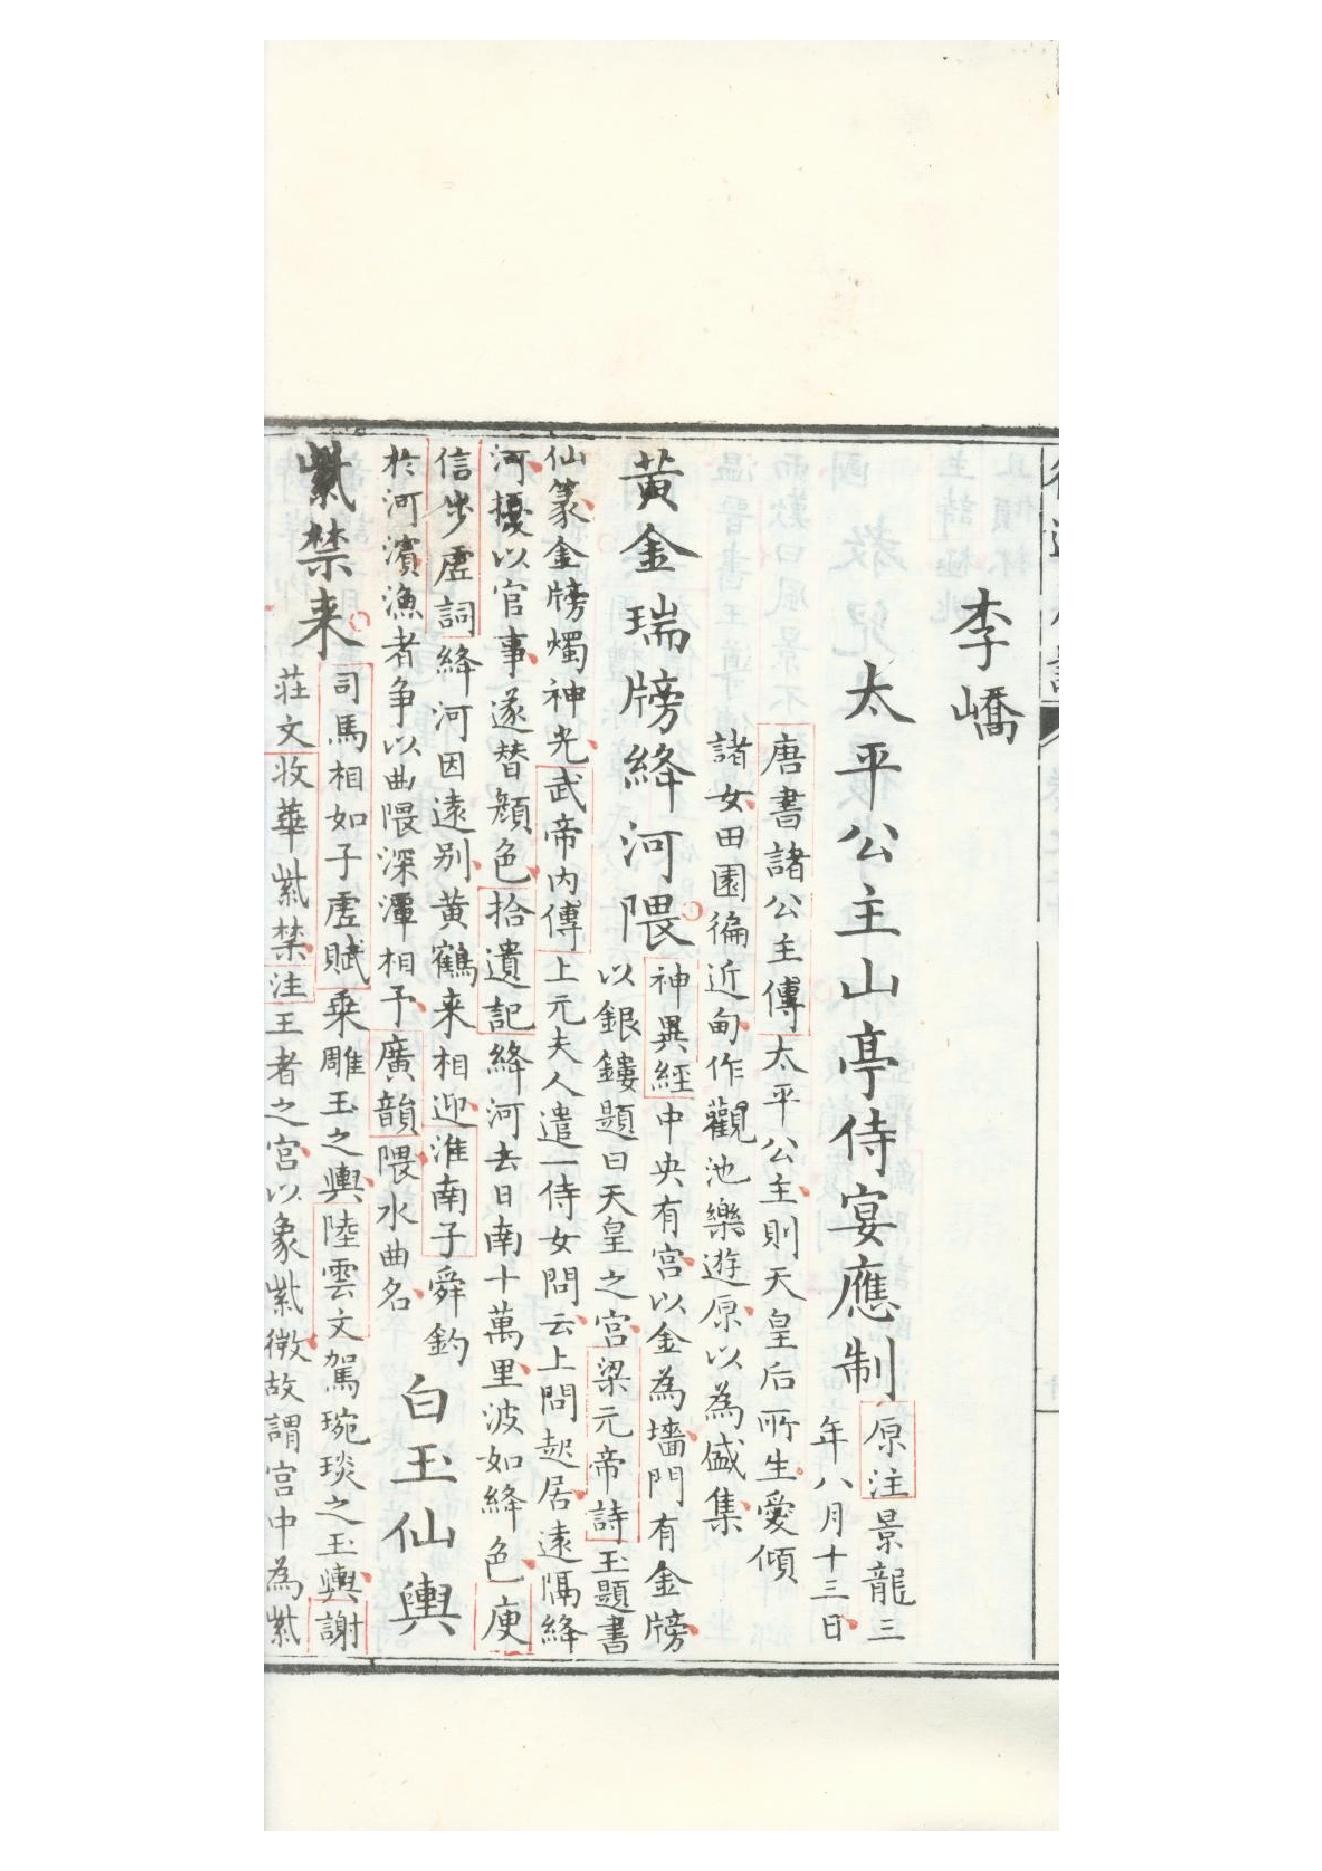 李嶠
太平公主山亭侍宴應制
原注景龍三
年八月十三日
唐書諸公主傳太平公主則天皇后所生愛傾
諸女田園徧近甸作觀池樂遊原以為盛集
黃金瑞牓絳河隈
神異經中央有宮以金為墻門有金牓
以銀鏤題曰天皇之宮梁元帝詩玉題書
仙篆金牓燭神光武帝內傳上元夫人遣一侍女問云上問起居遠隔絳
河擾以官事遂替顏色拾遺記絳河去日南十萬里波如絳色庾
信步虛詞絳河因遠別黃鶴来相迎淮南子舜釣
於河濱漁者争以曲隈深潭相予廣韻隈水曲名
白玉仙輿
紫禁来
司馬相如子虛賦乗雕玉之輿陸雲文駕琬琰之玉輿謝
莊文收華紫禁注王者之宮以象紫微故謂宮中為紫